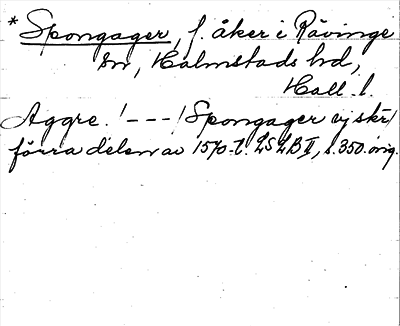 * Spongager, f. åker i Rävinge
sn, Halmstads hd,
Hall. l.
Aggre. ! --- / Spongager vj skr /
förra delen av 1570-t. LSLB II, s. 350. orig.